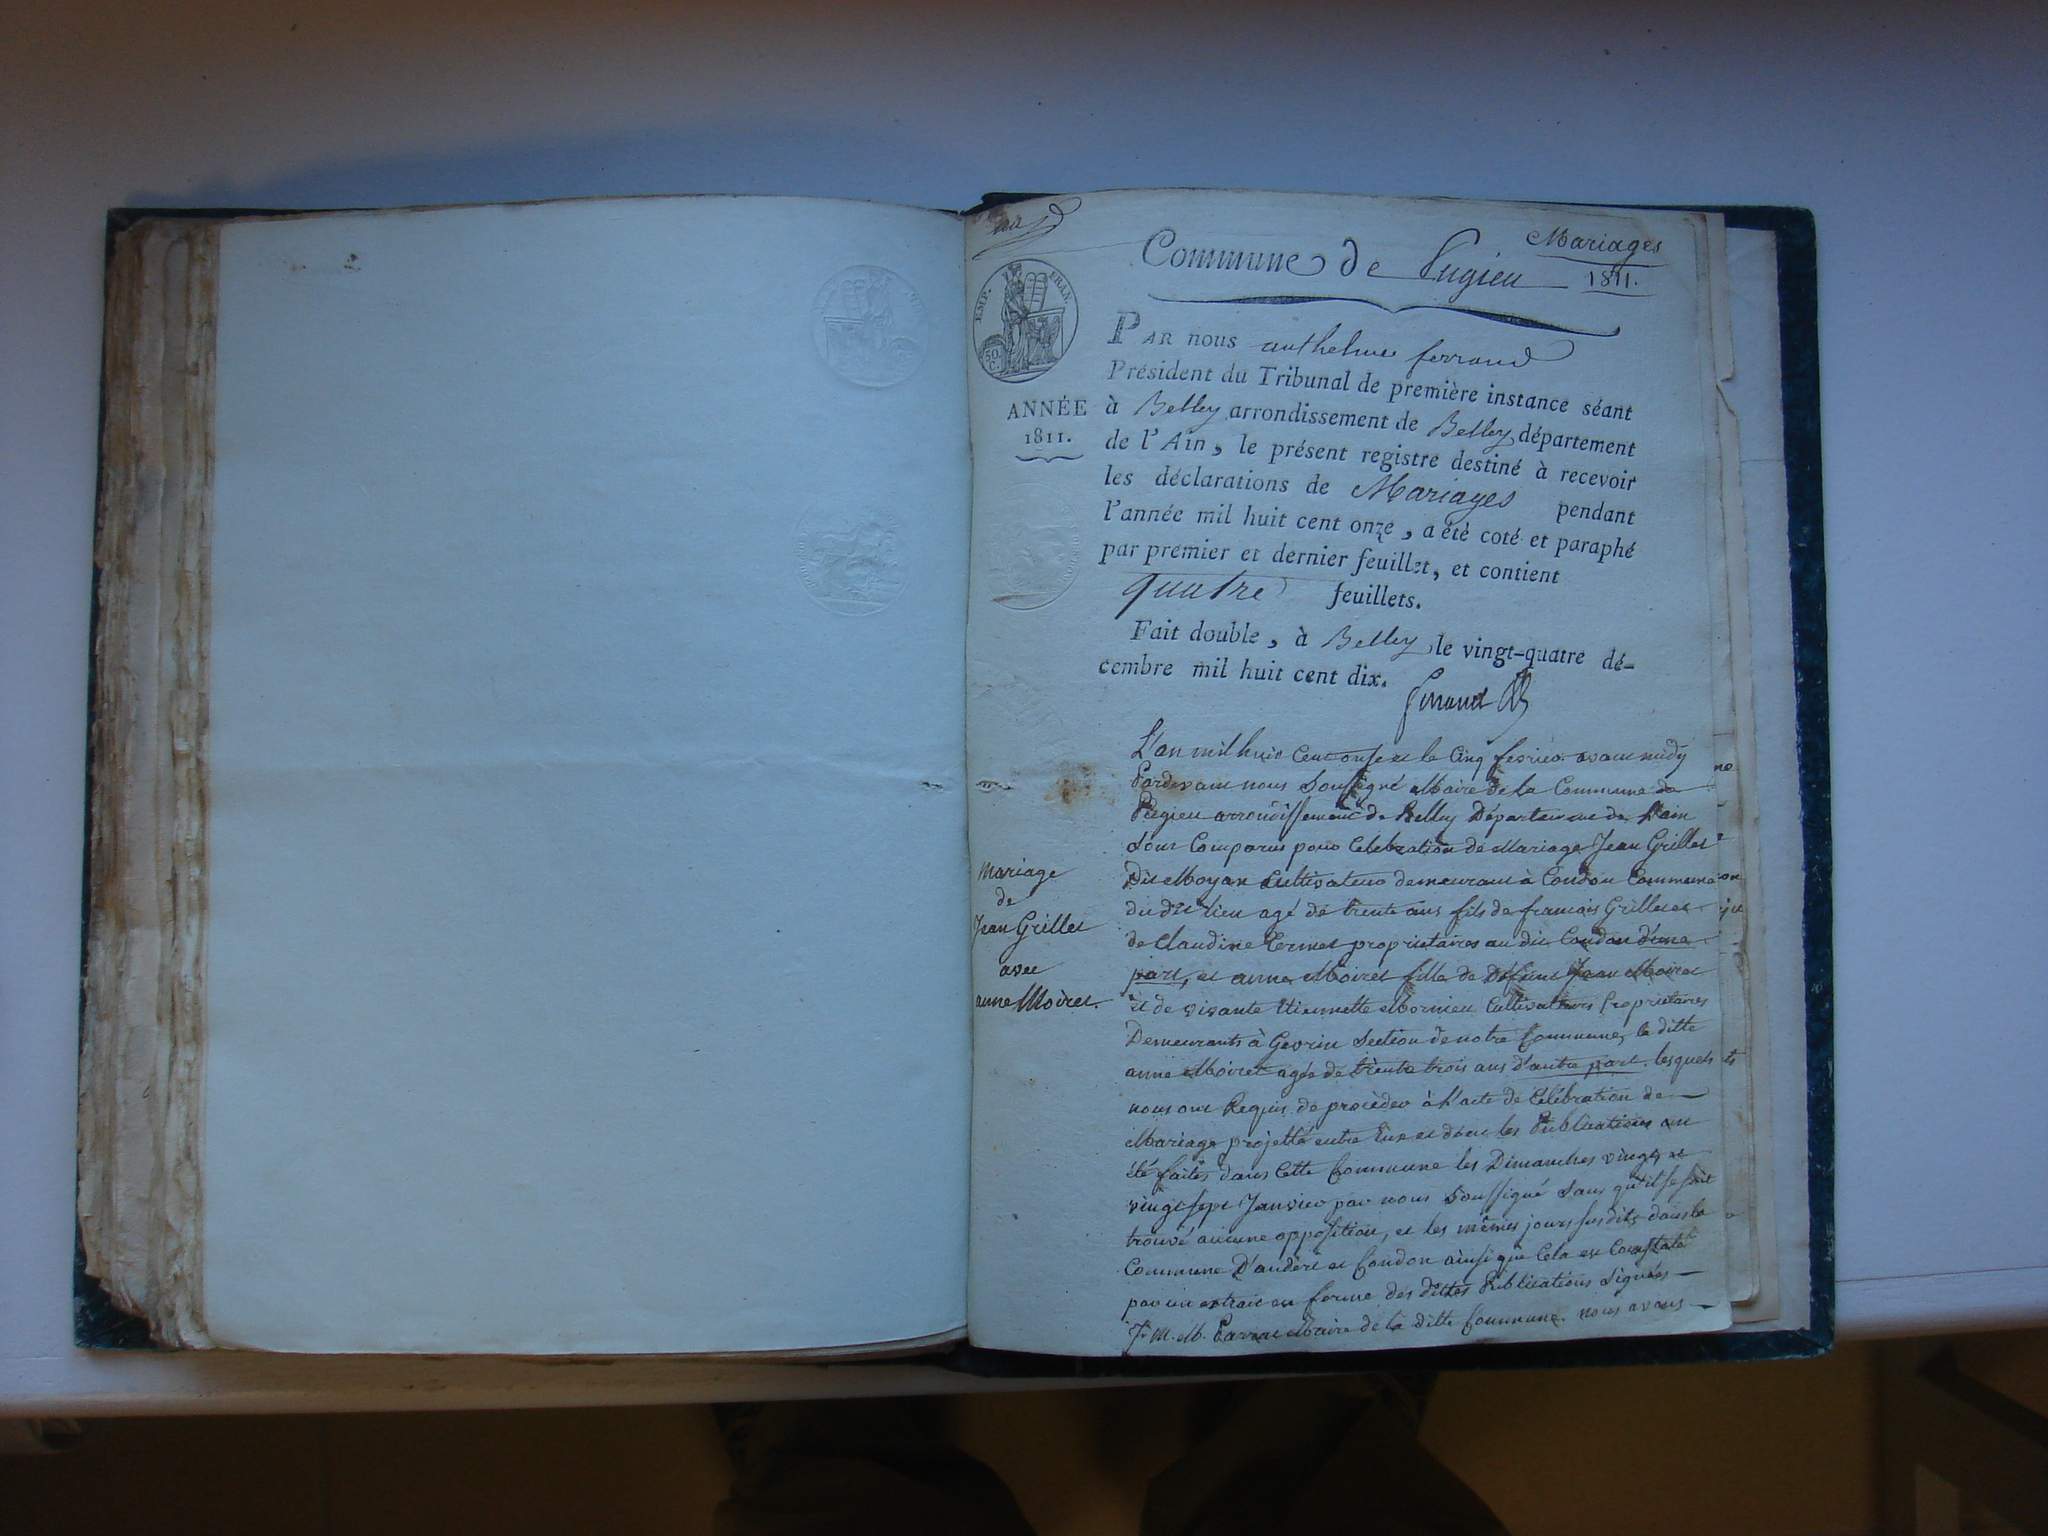 Mariages
1811.
Commune de Pugieu
EMP. FRAN.
50 C.
ANNÉE
1811.
PAR nous anthelme ferrand
Président du Tribunal de première instance séant
à Belley arrondissement de Belley département
de l'Ain, le présent registre destiné à recevoir
les déclarations de Mariages pendant
l'année mil huit cent onze, a été coté et paraphé
par premier et dernier feuillet, et contient
quatre feuillets.
Fait double, à Belley le vingt-quatre dé-
cembre mil huit cent dix.
ferrand
Mariage
de
Jean Grillet
avec
anne Moiret.
L'an mil huit Cent onse et le Cinq fevrier avant midy
Pardevant nous Soussigné Maire de la Commune de
Pugieu arrondissement de Belley Département de L'ain
Sont Comparus pour Celebration de Mariage Jean Grillet
Dit Moyan Cultivateur demeurant à Condon Commune
du dit lieu agé de trente ans fils de francois Grillet et
de Claudine proprietaires au dit Condon d'une
part, et anne Moiret fille de Défunt Jean Moiret
et de vivante Etiennette Mornieu Cultivateurs proprietaires
Demeurants à Gevrin Section de notre Commune, la ditte
anne Moiret agée de trente trois ans d'autre part. lesquels
nous ont Requis de procèder à L'acte de Célébration de
Mariage projetté entre Eux et dont les Publications ont
été faites dans Cette Commune les Dimanches vingt et
vingt sept Janvier par nous Soussigné Sans qu'il se soit
trouvé aucune opposition, et les mêmes jours susdits dans la
Commune D'andert et Condon ainsi que Cela est Constaté
par un extrait en forme des dittes Publications Signées
M. Maire de la ditte Commune. nous avons